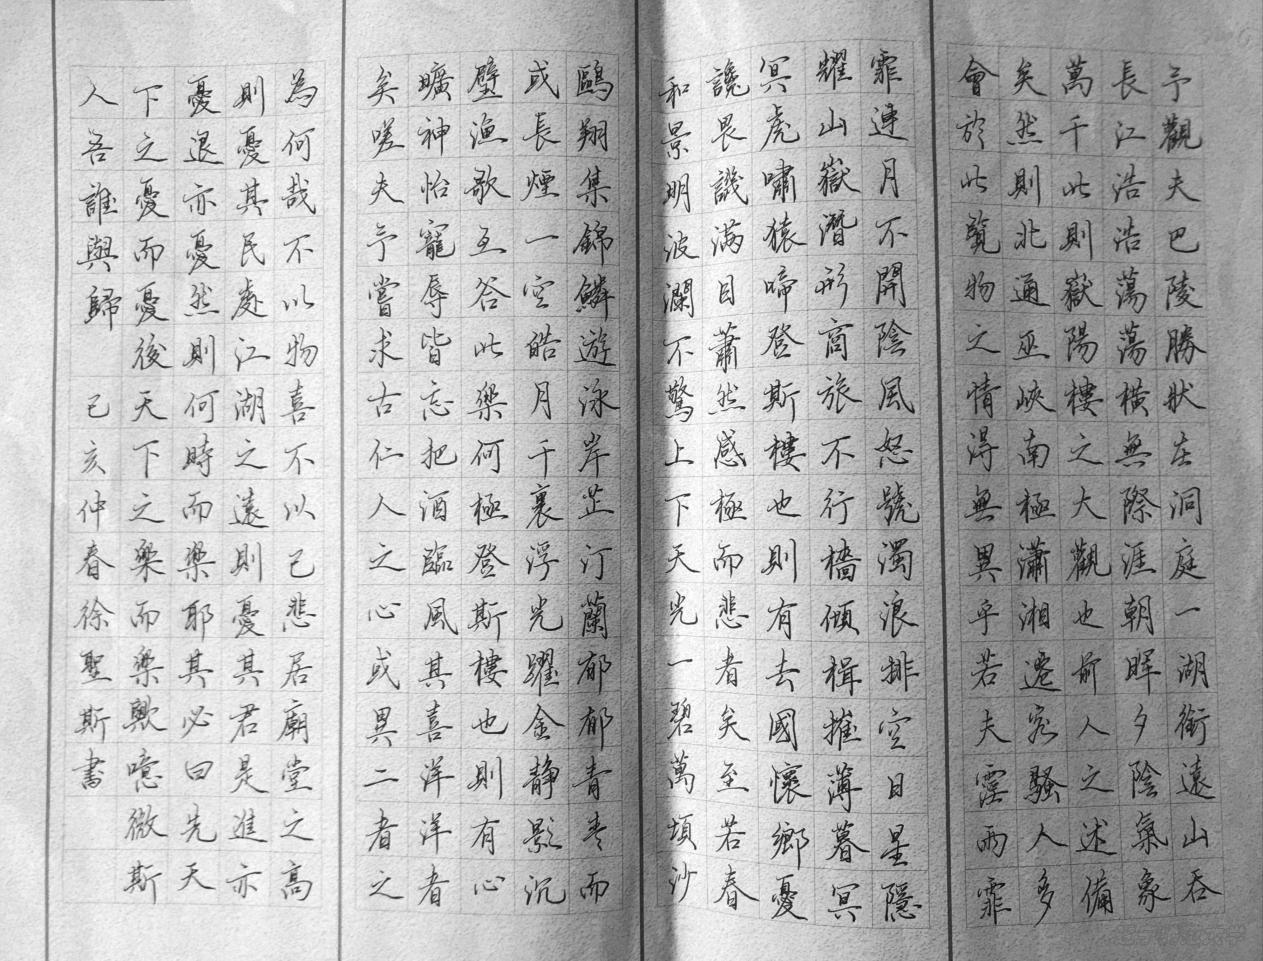 予觀夫巴陵勝狀在洞庭一湖銜遠山吞
長江浩浩蕩蕩橫無際涯朝暉夕陰氣象
萬千此則嶽陽樓之大觀也前人之述備
矣然則北通巫峽南極瀟湘遷客騷人多
會於此覽物之情得無異乎若夫霪雨霏
霏連月不開陰風怒號濁浪排空日星隱
耀山嶽潛形商旅不行檣傾楫摧薄暮冥
冥虎嘯猿啼登斯樓也則有去國懷鄉憂
讒畏譏滿目蕭然感極而悲者矣至若春
和景明波瀾不驚上下天光一碧萬頃沙
鷗翔集錦鱗遊泳岸芷汀蘭郁郁青青而
或長煙一空皓月千裏浮光躍金静影沉
璧漁歌互谷此樂何極登斯樓也則有心
曠神怡寵辱皆忘把酒臨風其喜洋洋者
矣嗟夫予嘗求古仁人之心或異二者之
為何哉不以物喜不以己悲居廟堂之高
則憂其民處江湖之遠則憂其君是進亦
憂退亦憂然則何時而樂耶其必曰先天
下之憂而憂後天下之樂而樂歟噫微斯
人吾誰與歸 己亥仲春徐聖斯書